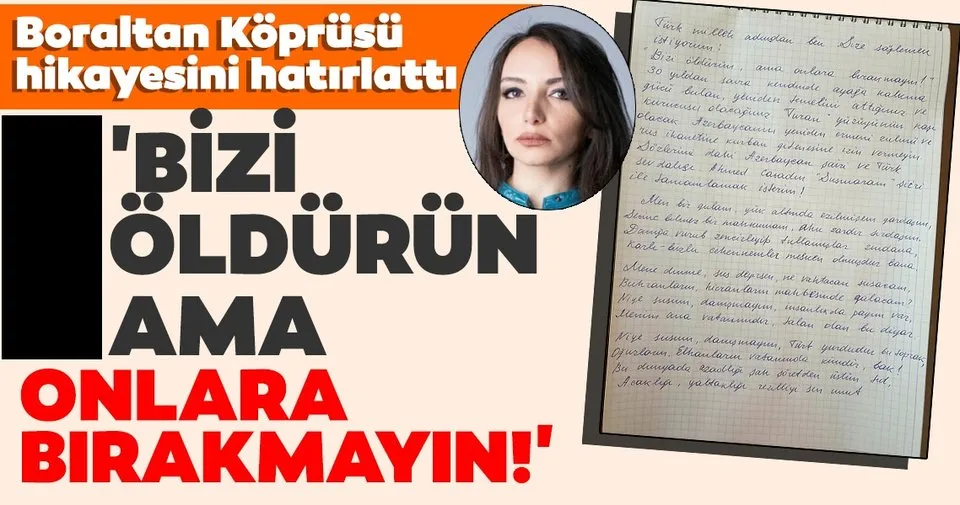 Boraltan Köprüsü
hikayesini hatırlattı
'BİZİ
ÖLDÜRÜN
AMA
ONLARA
BIRAKMAYIN!'
Türk milleti adından ben Size söylemek
istiyorum:
"Bizi öldürün, ama onlara bıraqmayın!"
30 yıldan sonra kendinde ayağa kalkma
gücü bulan, yeniden temelini attığımız ve
kurucusu olacağımız "Turan" yürüyüşünün
olacak Azerbaycanın yeniden ermeni zulmü ve
rus ihanetine kurban gitmesine izin vermeyin.
Sözlerimi dahi Azerbaycan şairi ve Türk
sevdalısı Ahmed Cavadın "Susmaram" şeiri
ile tamamlamak isterim!
Men bir qulam, yük altında ezilmişem qardaşım,
bilmez bir mahkumam, ahu zardır sırdaşım.
Damğa vurub zencirleyip zindana,
Karlı-buzlu cehennemler mesken olmuşdur bana.
Mene dinme, sus deyirsen, ne vaxtacan susacam,
hicranların mahbesinde qalacam?
Niye susum, danışmayım, insanlıkda payım var,
Menim ana vatanımdır, talan olan bu diyar.
Niye susum, danışmayım, Türk yurdudur bu toprak,
Oğuzların, Elhanların vatanında kimdir, bak!
Bu dünyada şan şöretden üstün
Acaklığı, yaltaklığı